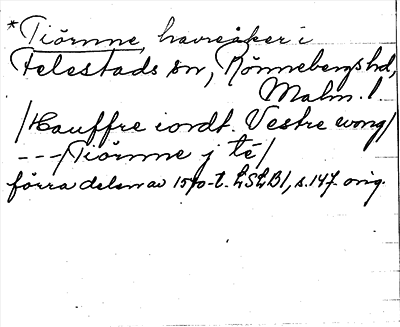 *Tiörnne, havreåker i
Felestads sn, Rönnebergs hd,
Malm. l
/Hauffre iordt. Vestre wong/
---/Tiörnne j té/
förra delen av 1570-t. LSLB1, s.147 orig.